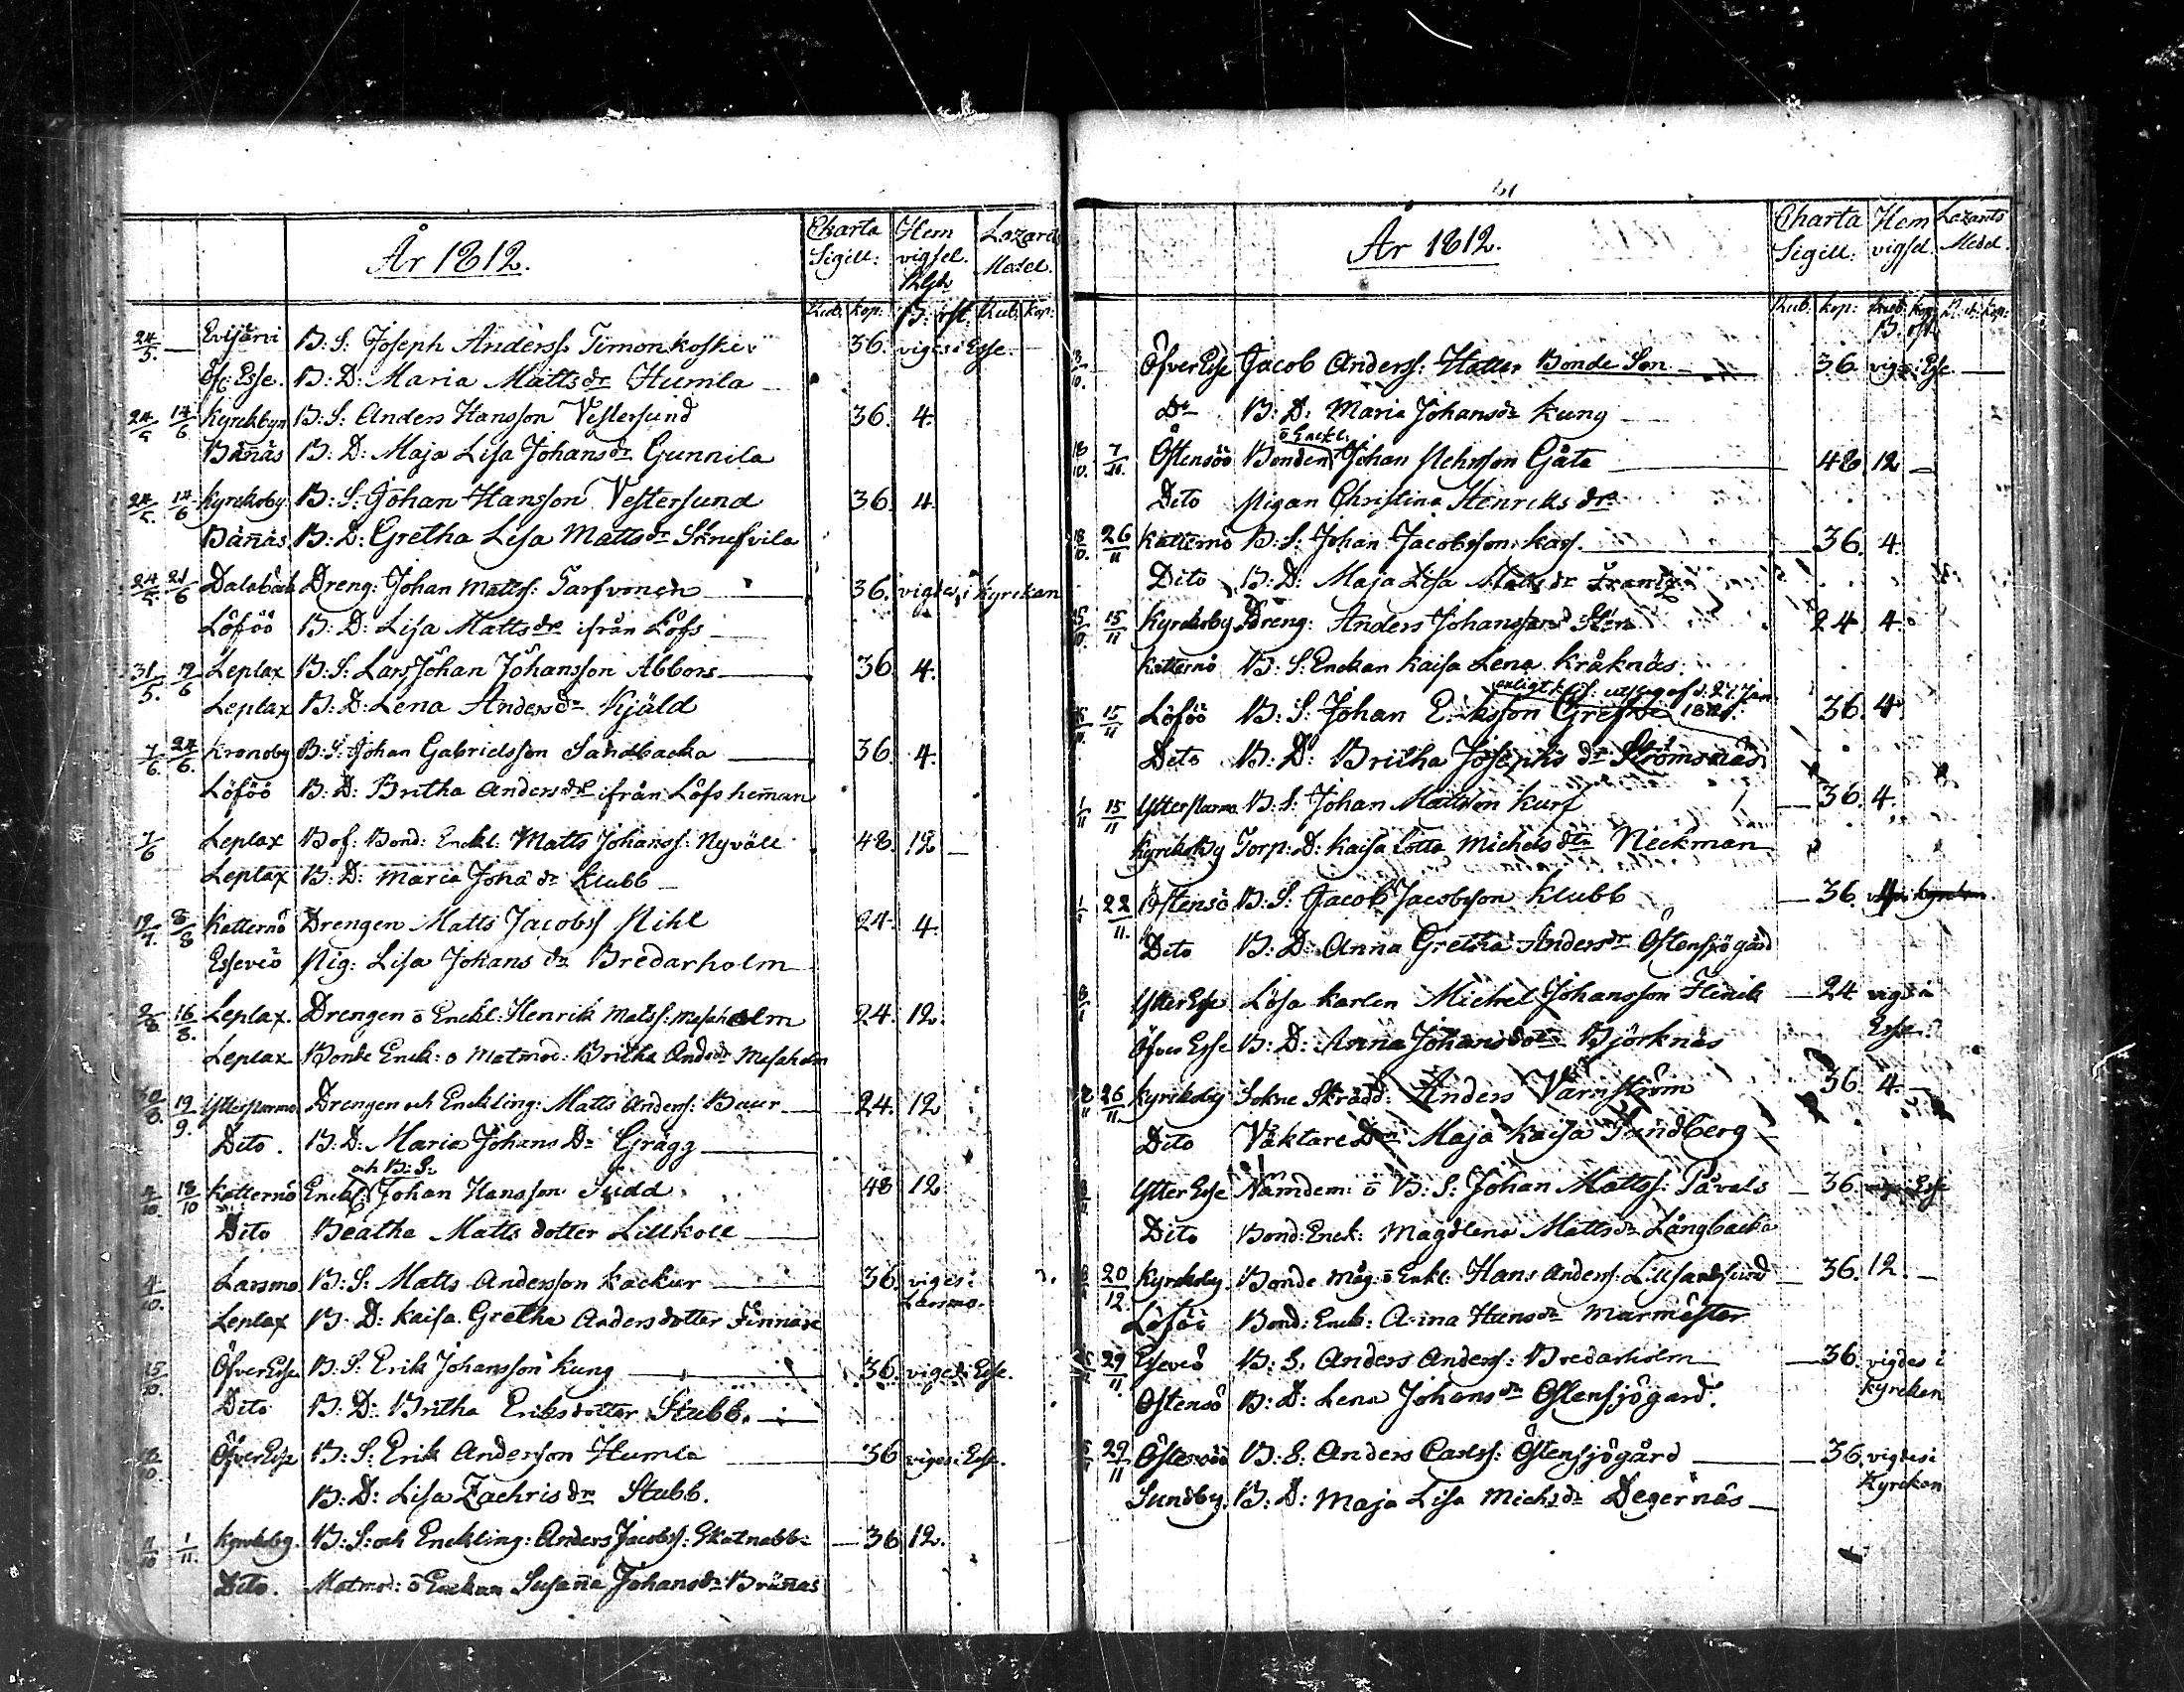 År 1812.
Charta Sigill: Hem vigsel. Lazarets Medel.
Rub: kop: B: ost: Rub: kop:
24/5. — Evijärvi B: S: Joseph Anderss. Timonkoski 36. viges i Esse.
Öf: Esse. B: D: Maria Matts dr Humla
24/5 14/6 Kyrckbyn B: S: Anders Hansson Vestersund 36. 4.
Bännäs B: D: Maja Lisa Johans dr Gunnila
24/5 14/6 Kyrckoby B: S: Johan Hansson Vestersund 36. 4.
Bännäs. B: D: Gretha Lisa Matts dr
24/5. 21/6 Dalabäck Dreng: Johan Matts: Tarfvonen 36. vigdes i kyrckan
Löföö B: D: Lisa Matts dr ifrån Löfs
31/5. Leplax B: S: Lars Johan Johansson Abbors 36 4.
Leplax B: D: Lena Anders dr Kjäld
7/6. 24/6. Kronoby B: S: Johan Gabrielsson Sandbacka 36 4.
Löföö B: D: Britha Anders dr ifrån Löfs hem̄an
7/6 Leplax Bof: Bond: Enckl: Matts Johanss: Nyväll 48. 12
Leplax B: D: Maria Joha dr Klubb
19/7. 8/8 Katternö Drengen Matts Jacobss Pihl 24. 4.
Esseviö Pig: Lisa Johans dr Bredarholm
2/8 16/8. Leplax. Drengen o Enckl: Henrik Matss: Masaholm 24. 12.
Leplax Bonde Enck: o Matmod: Britha And: dr Masaholm
30/8. 19/9. Ytterpurmo Drengen och Enckling: Matts Anders: Baur 24. 12
Dito. B: D: Maria Johans Dr Grägg
och B: S:
4/10. 18/10 Katternö Enckl: Johan Hansson Sudd 48 12
Dito Beatha Matts dotter Lillkoll
4/10. Larsmo. B: S: Matts Andersson Kackur 36 viges i Larsmo.
Leplax B: D: Kaisa Gretha Anders dotter Finnäs
ÖfverEsse B: S: Erik Johansson Kung 36. viges i Esse.
Dito B: D: Britha Eriksdotter Stubb.
ÖfverEsse B: S: Erik Andersson Humla 36 viges i Esse.
B: D: Lisa Zachris dr Stubb.
11/10 1/11. Kyrckoby. B: S: och Enckling: Anders Jacobss: Skatnabba 36 12.
Dito. Matmod: o Enckan Susan̄a Johans dr Brännäs
År 1812.
Charta Sigill: Hem vigsel. Lazarets Medel.
Rub: kop: Rub: kop: Rub: kop:
B: ost:
ÖfverEsse Jacob Anderss: Hatter Bonde Son 36 viges i Esse
Dr B: D: Maria Johans dr Kung
o Enckl:
18/10. 7/11. Östensöö Bonden Johan Pehrsson Gåta 48 12
Dito Pigan Christina Henriks dr
18/10. 26/11 Katternö B: S: Johan Jacobsson Kass. 36. 4.
Dito B: D: Maja Lisa Matts dr Frantz
15/11 Kyrckoby Dreng: Anders Johansson Sten 24 4.
Katternö B: S: Enckan Kaisa Lena Kråknäs.
enligt utslag af d. 27 Jan. 1821.
15/11 Löföö B: S: Johan Eriksson Grefve 36. 4.
Dito B: D: Britha Josephs dr Strömsnäs
1/11 15/11 Ytterpurmo B: S: Johan Mattsson Kurf 36. 4.
Kyrckoby Torp: D: Kaisa Lotta Michels dtr Neckman
22/11. Östensö B: S: Jacob Jacobsson Klubb 36.
Dito B: D: Anna Gretha Anders dr Östensjögård
YtterEsse Lösa karlen Michel Johansson Flinck 24 vigd i Esse.
Öfver Esse B: D: Anna Johansdotr Björknäs
8/11 26/11 Kyrckoby Sokne Skrädd: Anders Varnström 36 4.
Dito Väktare Dr: Maja Kaisa Sundberg
YtterEsse Nämdem: o B: S: Johan Mattss: Påvals 36
Dito Bond: Enck: Magdlena Matts dr Långbacka
20/12. Kyrckoby. Bonde Måg: o Enkl: Hans Anders: Lillsandsund 36. 12.
Löföö Bond: Enck: Anna Hans dr Murmäster
29/11. Esseviö B: S: Anders Anders: Bredarholm 36. vigdes i kyrckan
Östensö B: D: Lena Johans dr Östensjögård.
29/11 Östensöö B: S: Anders Carlss: Östensjögård 36. vigdes i Kyrckan
Sundby. B: D: Maja Lisa Michs dr Degernäs